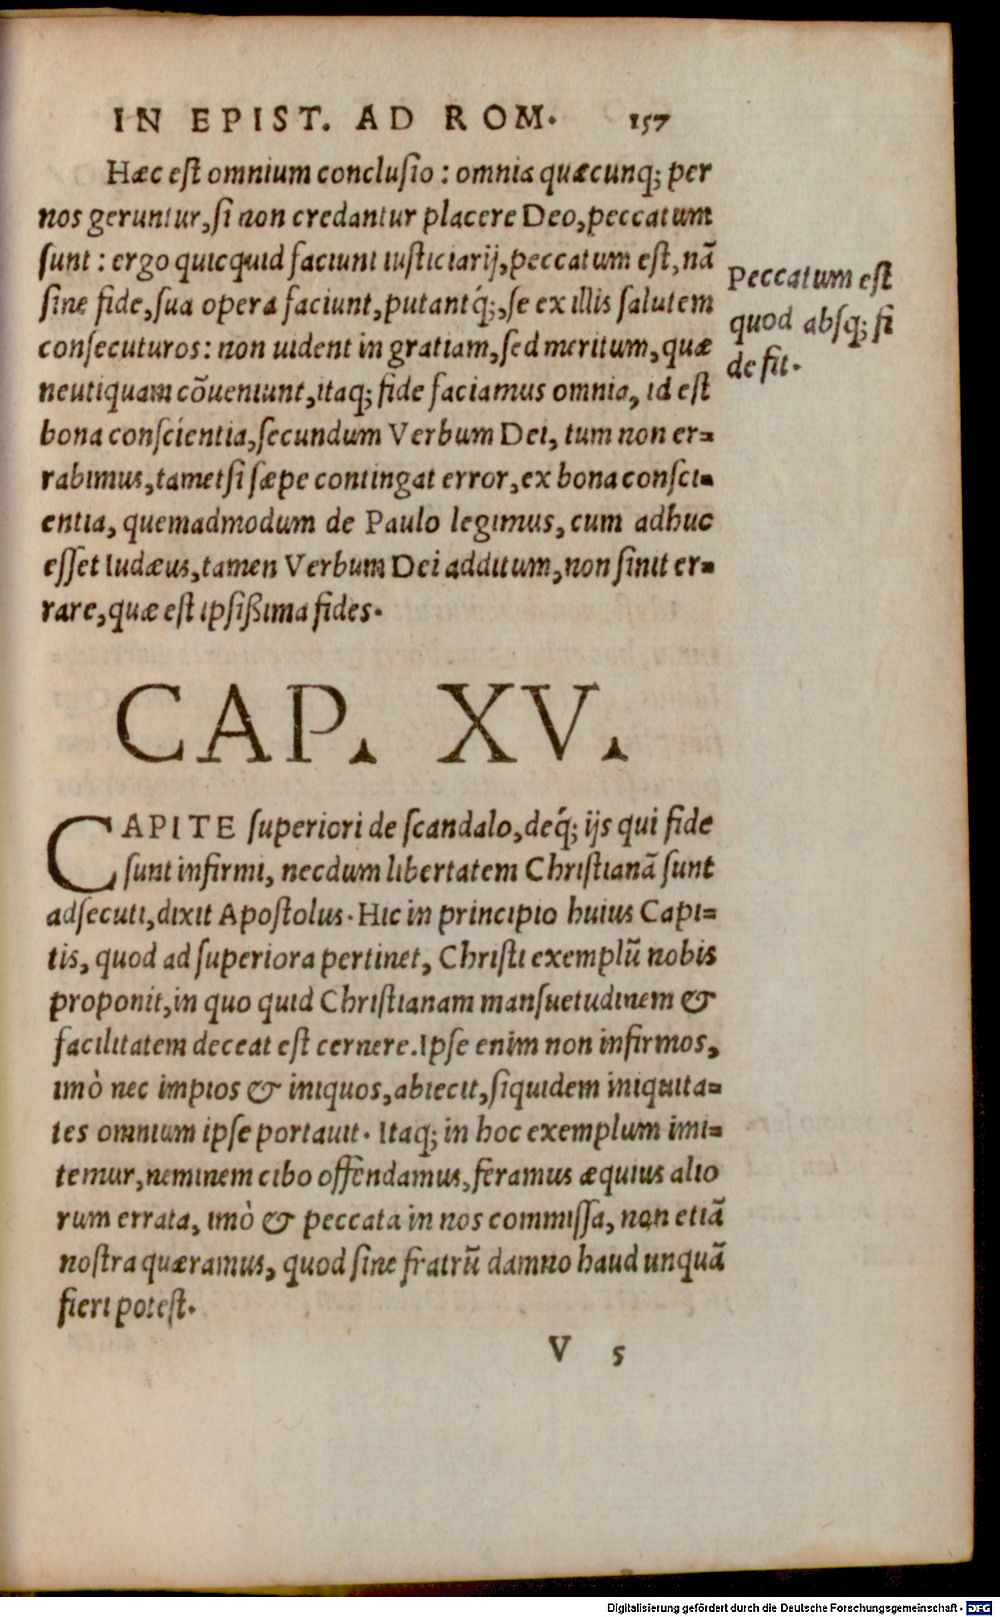 IN EPIST. AD ROM. 157
Hæc est omnium conclusio : omnia quæcunq; per
nos geruntur, si non credantur placere Deo, peccatum
sunt : ergo quicquid faciunt iusticiarij, peccatum est, nã
sine fide, sua opera faciunt, putantq́;, se ex illis salutem
consecuturos : non uident in gratiam, sed meritum, quæ
neutiquam cõueniunt, itaq; fide faciamus omnia, id est
bona conscientia, secundum Verbum Dei, tum non er=
rabimus, tametsi sæpe contingat error, ex bona consci=
entia, quemadmodum de Paulo legimus, cum adhuc
esset Iudæus, tamen Verbum Dei additum, non sinit er=
rare, quæ est ipsißima fides.
Peccatum est
quod absq; fi
de fit.
CAP. XV.
CAPITE superiori de scandalo, deq́; ijs qui fide
sunt infirmi, necdum libertatem Christianã sunt
adsecuti, dixit Apostolus. Hic in principio huius Capi=
tis, quod ad superiora pertinet, Christi exemplũ nobis
proponit, in quo quid Christianam mansuetudinem &
facilitatem deceat est cernere. Ipse enim non infirmos,
imò nec impios & iniquos, abiecit, siquidem iniquita=
tes omnium ipse portauit. Itaq; in hoc exemplum imi=
temur, neminem cibo offendamus, feramus æquius alio
rum errata, imò & peccata in nos commissa, non etiã
nostra quæramus, quod sine fratrũ damno haud unquã
fieri potest.
V 5
Digitalisierung gefördert durch die Deutsche Forschungsgemeinschaft - DFG